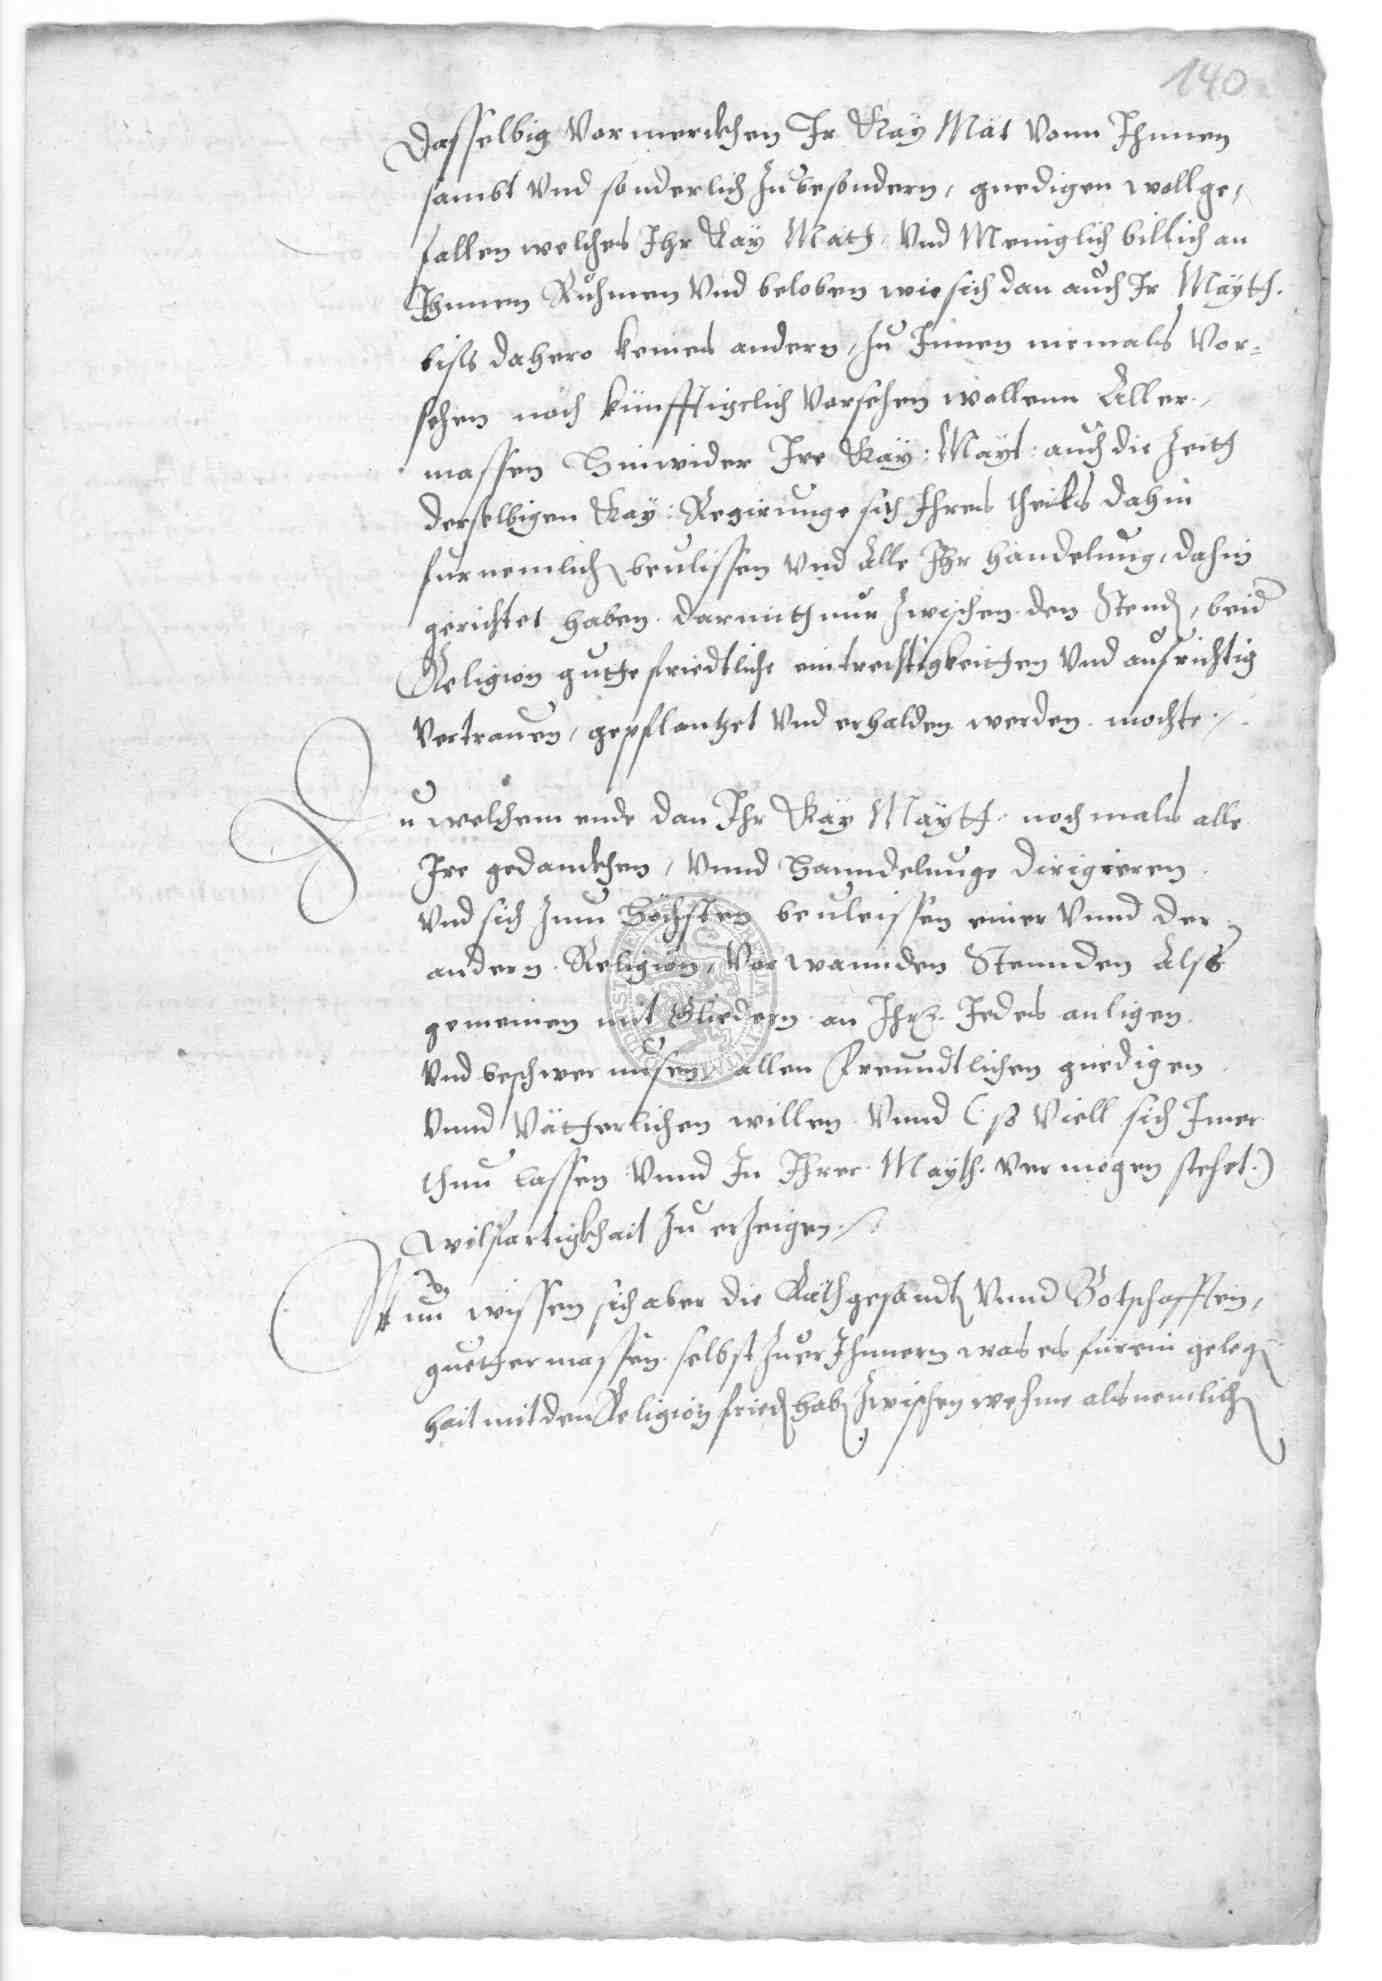 140
Dasselbig Vormerckhen Ir Kay Mat Vonn Ihnnen
sambt Vnd sonderlich Zubesondern, gnedigen wollge,
fallen welches Ihr Kay Math. Vnd Meniglich billich an
Ihnnen Ruhmen Vnd beloben wie sich dan auch Ir Mayth.
biss dahero keines andern, Zu Innen niemals Vor=
sehen noch künfftigclich Vorsehen wollenn Aller,
massen Hinwider Ire Kay: Mayt: auch die Zeith
derselbigen Kay: Regirunge sich Ihres theils dahin
furnemlich bevlissen Vnd Alle Ihr handelung, dahin
gerichtet haben. darmith nur Zwischen den Stend, beid
Religion guthe friedtliche eintrechtigkeithen Vnd aufrichtig
Vertrauen, gepflantzet Vnd erhalden werden mochte./.
Zu welchem ende dan Ihr Kay Mayth. nochmals alle
Ire gedanckhen, Vnnd Hanndelunge dirigieren
Vnd sich Zum Höchsten bevleissen einer Vnnd der
andern Religion, Vorwannden Stennden Alss
gemeinen mit Gliedern an Ihrs Jedes anligen
Vnd beschwernusen, allen freundtlichen gnedigen
Vnnd Vätherlichen willen Vnnd (: so Viell sich Imer
thun lassen Vnnd In Ihrer Mayth. Vermögen stehet.)
wilfartigkhait Zu erZeigen./.
Nun wissen sich aber die Räth gesandt Vnnd Botschafften,
guether massen selbst Zuer Ihnnern was es für ein geleg
hait mit den Religion fried hab Zwischen wehme als nemlich